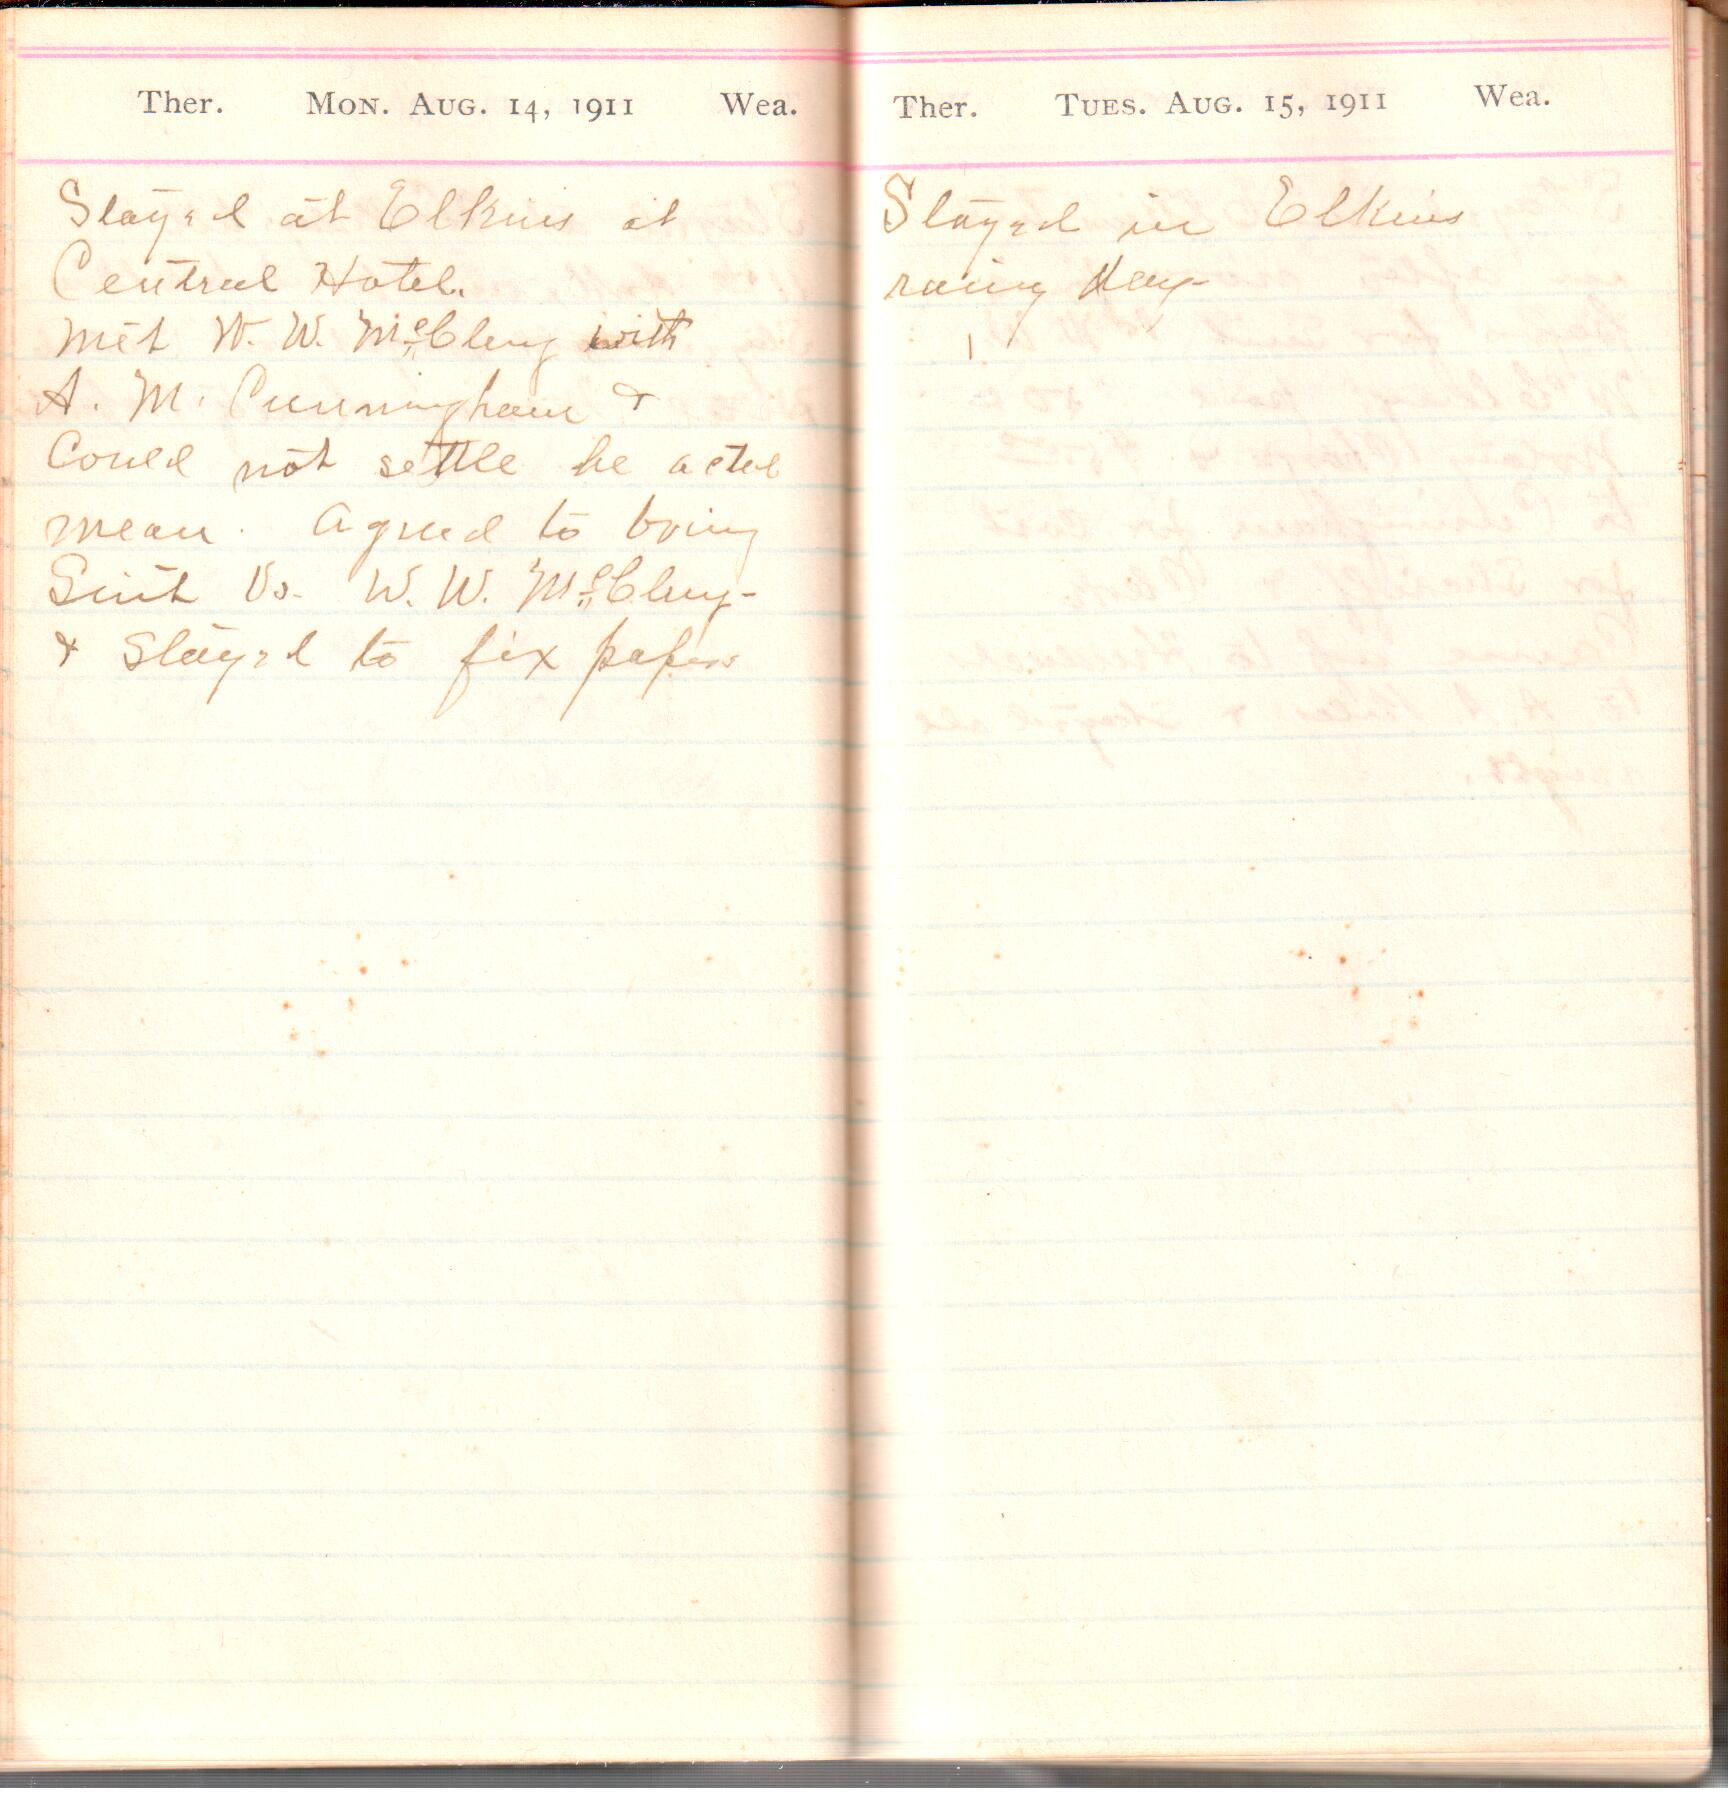 Ther. Mon. Aug. 14, 1911 Wea.
Stayed at Elkins at
Central Hotel.
Met W. W. McClung with
A. M. Cunningham &
Could not settle he acted
mean. Agreed to bring
Suit Vs. W. W. McClung-
& Stayed to fix papers
Ther. Tues. Aug. 15, 1911 Wea.
Stayed in Elkins
rainy day-